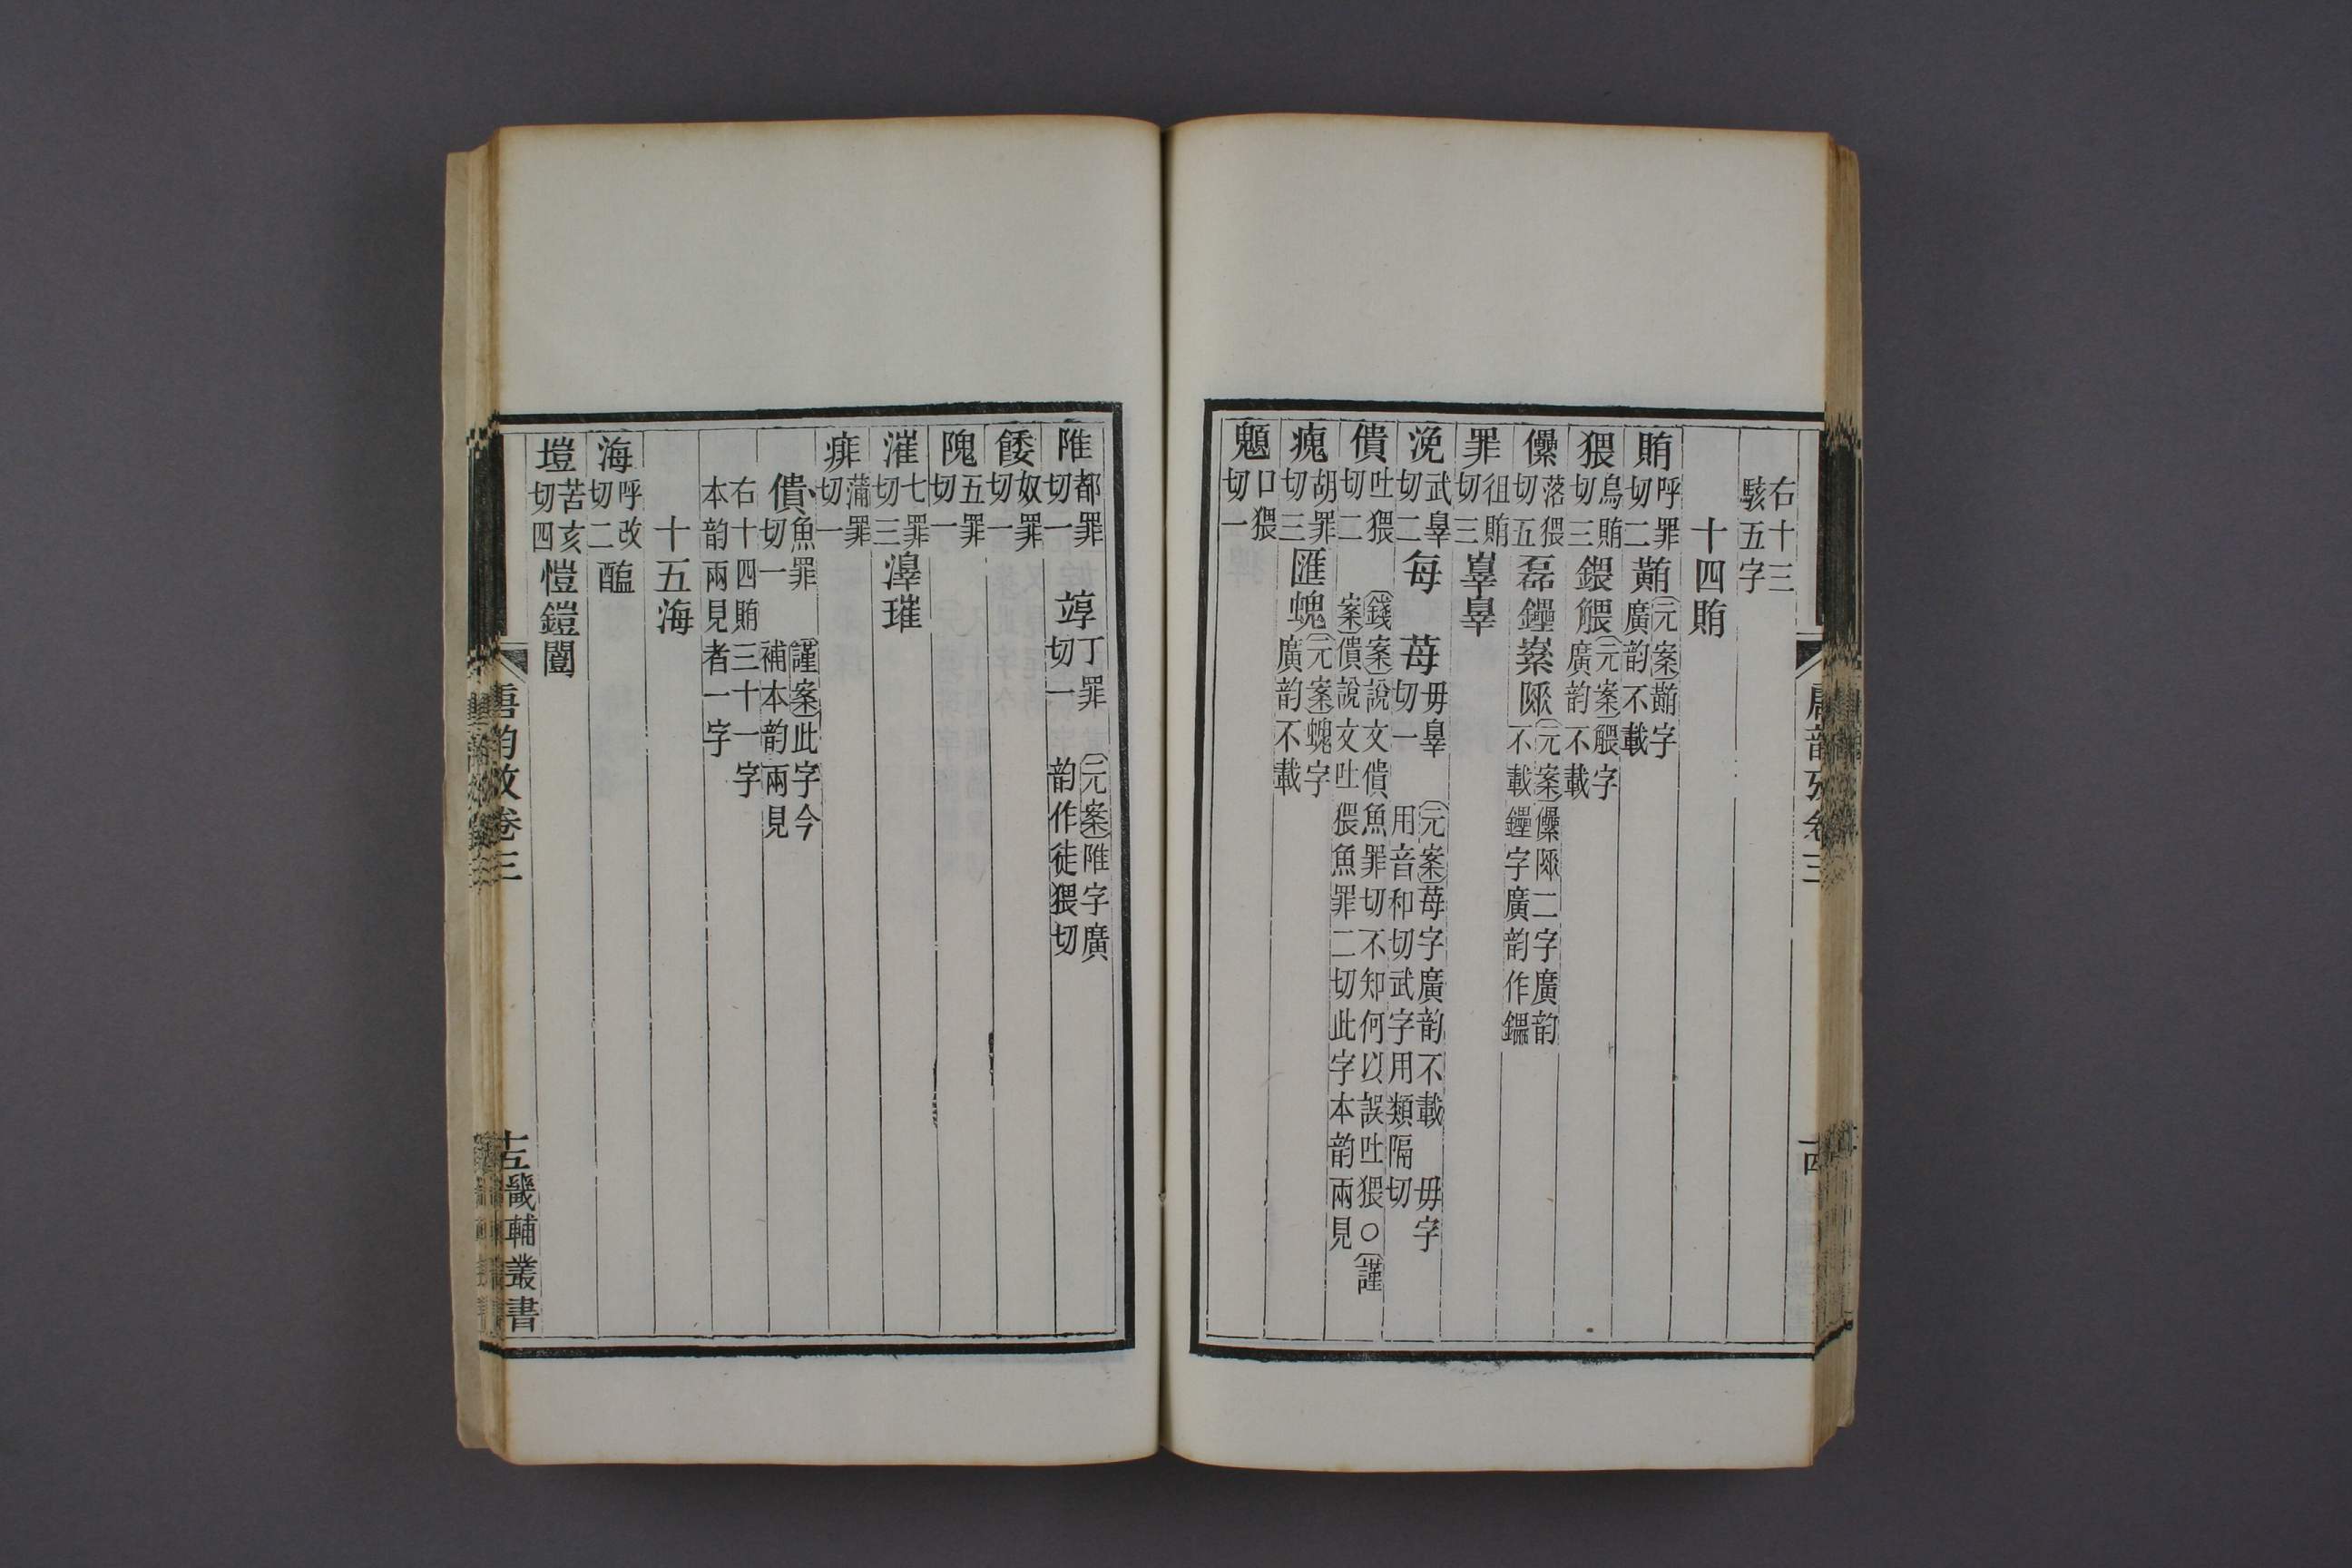 右十三駭五字
十四賄
賄呼罪切二䕊元案䕊字廣韵不載
猥烏賄切三鍡䚈元案䚈字廣韵不載
儽落猥切五磊鑸絫𨻼元案儽𨻼二字廣韵不載鑸字廣韵作鑘
罪徂賄切三辠
浼武辠切二每苺毋辠切一元案苺字廣韵不載毋字用音和切武字用類隔切
僓吐猥切二錢案說文僓魚罪切不知何以誤吐猥○謹案僓說文吐猥魚罪二切此字本韵兩見
瘣胡罪切三匯螝元案螝字廣韵不載
顝口猥切一
唐韵攷卷三
十四
陮都罪切一㟎丁罪切一元案陮字廣韵作徒猥切
餧奴罪切一
隗五罪切一
漼七罪切三璀
痱蒲罪切一
僓魚罪切一謹案此字今補本韵兩見
右十四賄三十一字本韵兩見者一字
十五海
海呼改切二醢
塏苦亥切四愷鎧闓
唐韵攷卷三
十五
畿輔叢書